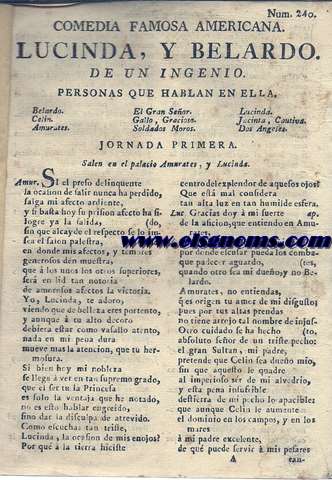 Num. 240.
COMEDIA FAMOSA AMERICANA.
LUCINDA, Y BELARDO.
DE UN INGENIO.
PERSONAS QUE HABLAN EN ELLA.
Belardo. El Gran Señor. Lucinda.
Celin. Gallo, Gracioso. Jacinta, Cautiva.
Amurates. Soldados Moros. Dos Angeles.
JORNADA PRIMERA.
Salen en el palacio Amurates, y Lucinda.
Amur. SI el preso delinquente
la ocasion de salir nunca ha perdido,
salga mi afecto ardiente,
y si basta hoy su prision afecto ha si-
logre ya la salida, (do,
sin que alcayde el respecto se lo im-
sea el salon palestra,
en donde mis afectos, y temores
generosos den muestra,
que á los unos los otros superiores,
será en lid tan notoria
de amorosos afectos la victoria.
Yo, Lucinda, te adoro,
viendo que de belleza eres portento,
y aunque á tu alto decoro
debiera estar como vasallo atento,
nada en mi pena dura
mueve mas la atencion, que tu her-
mosura.
Si bien hoy mi nobleza
se llegó á ver en tan supremo grado,
que el ser tu la Princesa
es solo la ventaja que he notado,
no es esto hablar engreido,
sino dar la disculpa de atrevido.
Como escuchas tan triste,
Lucinda, la ocasion de mis enojos?
Por qué á la tierra hiciste
centro del explendor de aquesos ojos?
Que está mal considera
tan alta luz en tan humilde esfera.
Luc. Gracias doy á mi suerte ap.
de la aficion, que entiendo en Amu-
rates,
www.elsanoms.com
por donde
que padecer aguardo, (tes,
quando otro sea mi dueño, y no Be-
lardo.
Amurates, no entiendas,
que es origen tu amor de mi disgusto,
pues por tus altas prendas
no tiene arrojo tal nombre de injus-
Otro cuidado se ha hecho (to,
absoluto señor de un triste pecho:
el gran Sultan, mi padre,
pretende que Celin sea dueño mio,
sin que aquesto le quadre
al imperioso ser de mi alvedrio,
y esta pena insufrible
destierra de mi pecho lo apacible:
que aunque Celin le aumente
el dominio en los campos, y en los
mares
á mi padre excelente,
de qué puede servir á mis pesares
A tan-